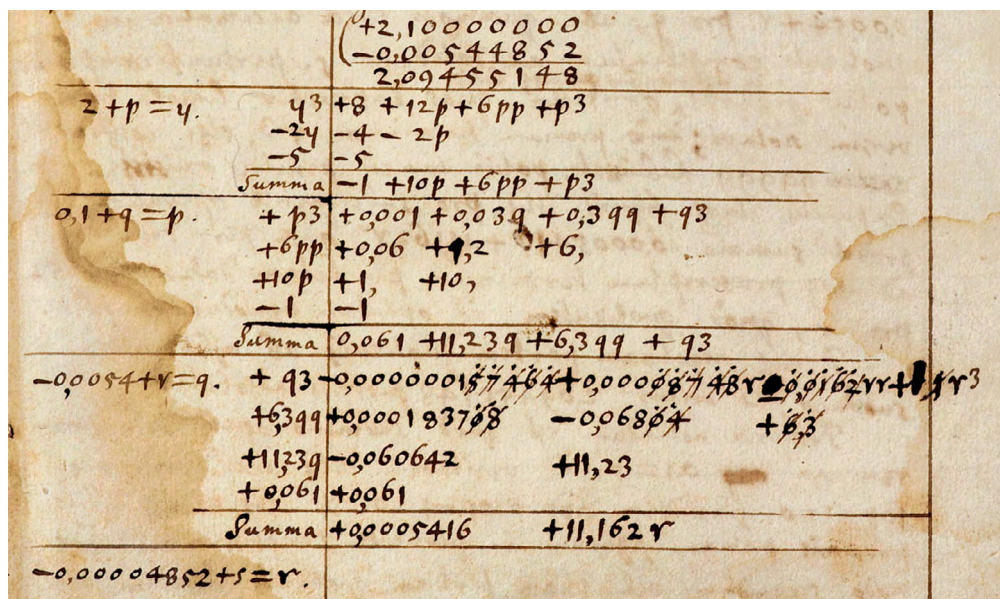 +2,10000000
-0,00544852
2,09455148
2+p=y. y3 +8 +12p +6pp +p3
-2y -4 - 2p
-5 -5
Summa -1 +10p +6pp +p3
0,1+q=p. + p3 +0,001 +0,03q +0,3qq +q3
+6pp +0,06 +1,2 +6,
+10p +1, +10,
-1 -1
Summa 0,061 +11,23q +6,3qq + q3
-0,0054+r=q. + q3 -0,000000157464 +0,00008748r -0,0162rr +r3
+6,3qq +0,000183708 -0,06804 +6,3
+11,23q -0,060642 +11,23
+0,061 +0,061
Summa +0,0005416 +11,162r
-0,00004852+s=r.